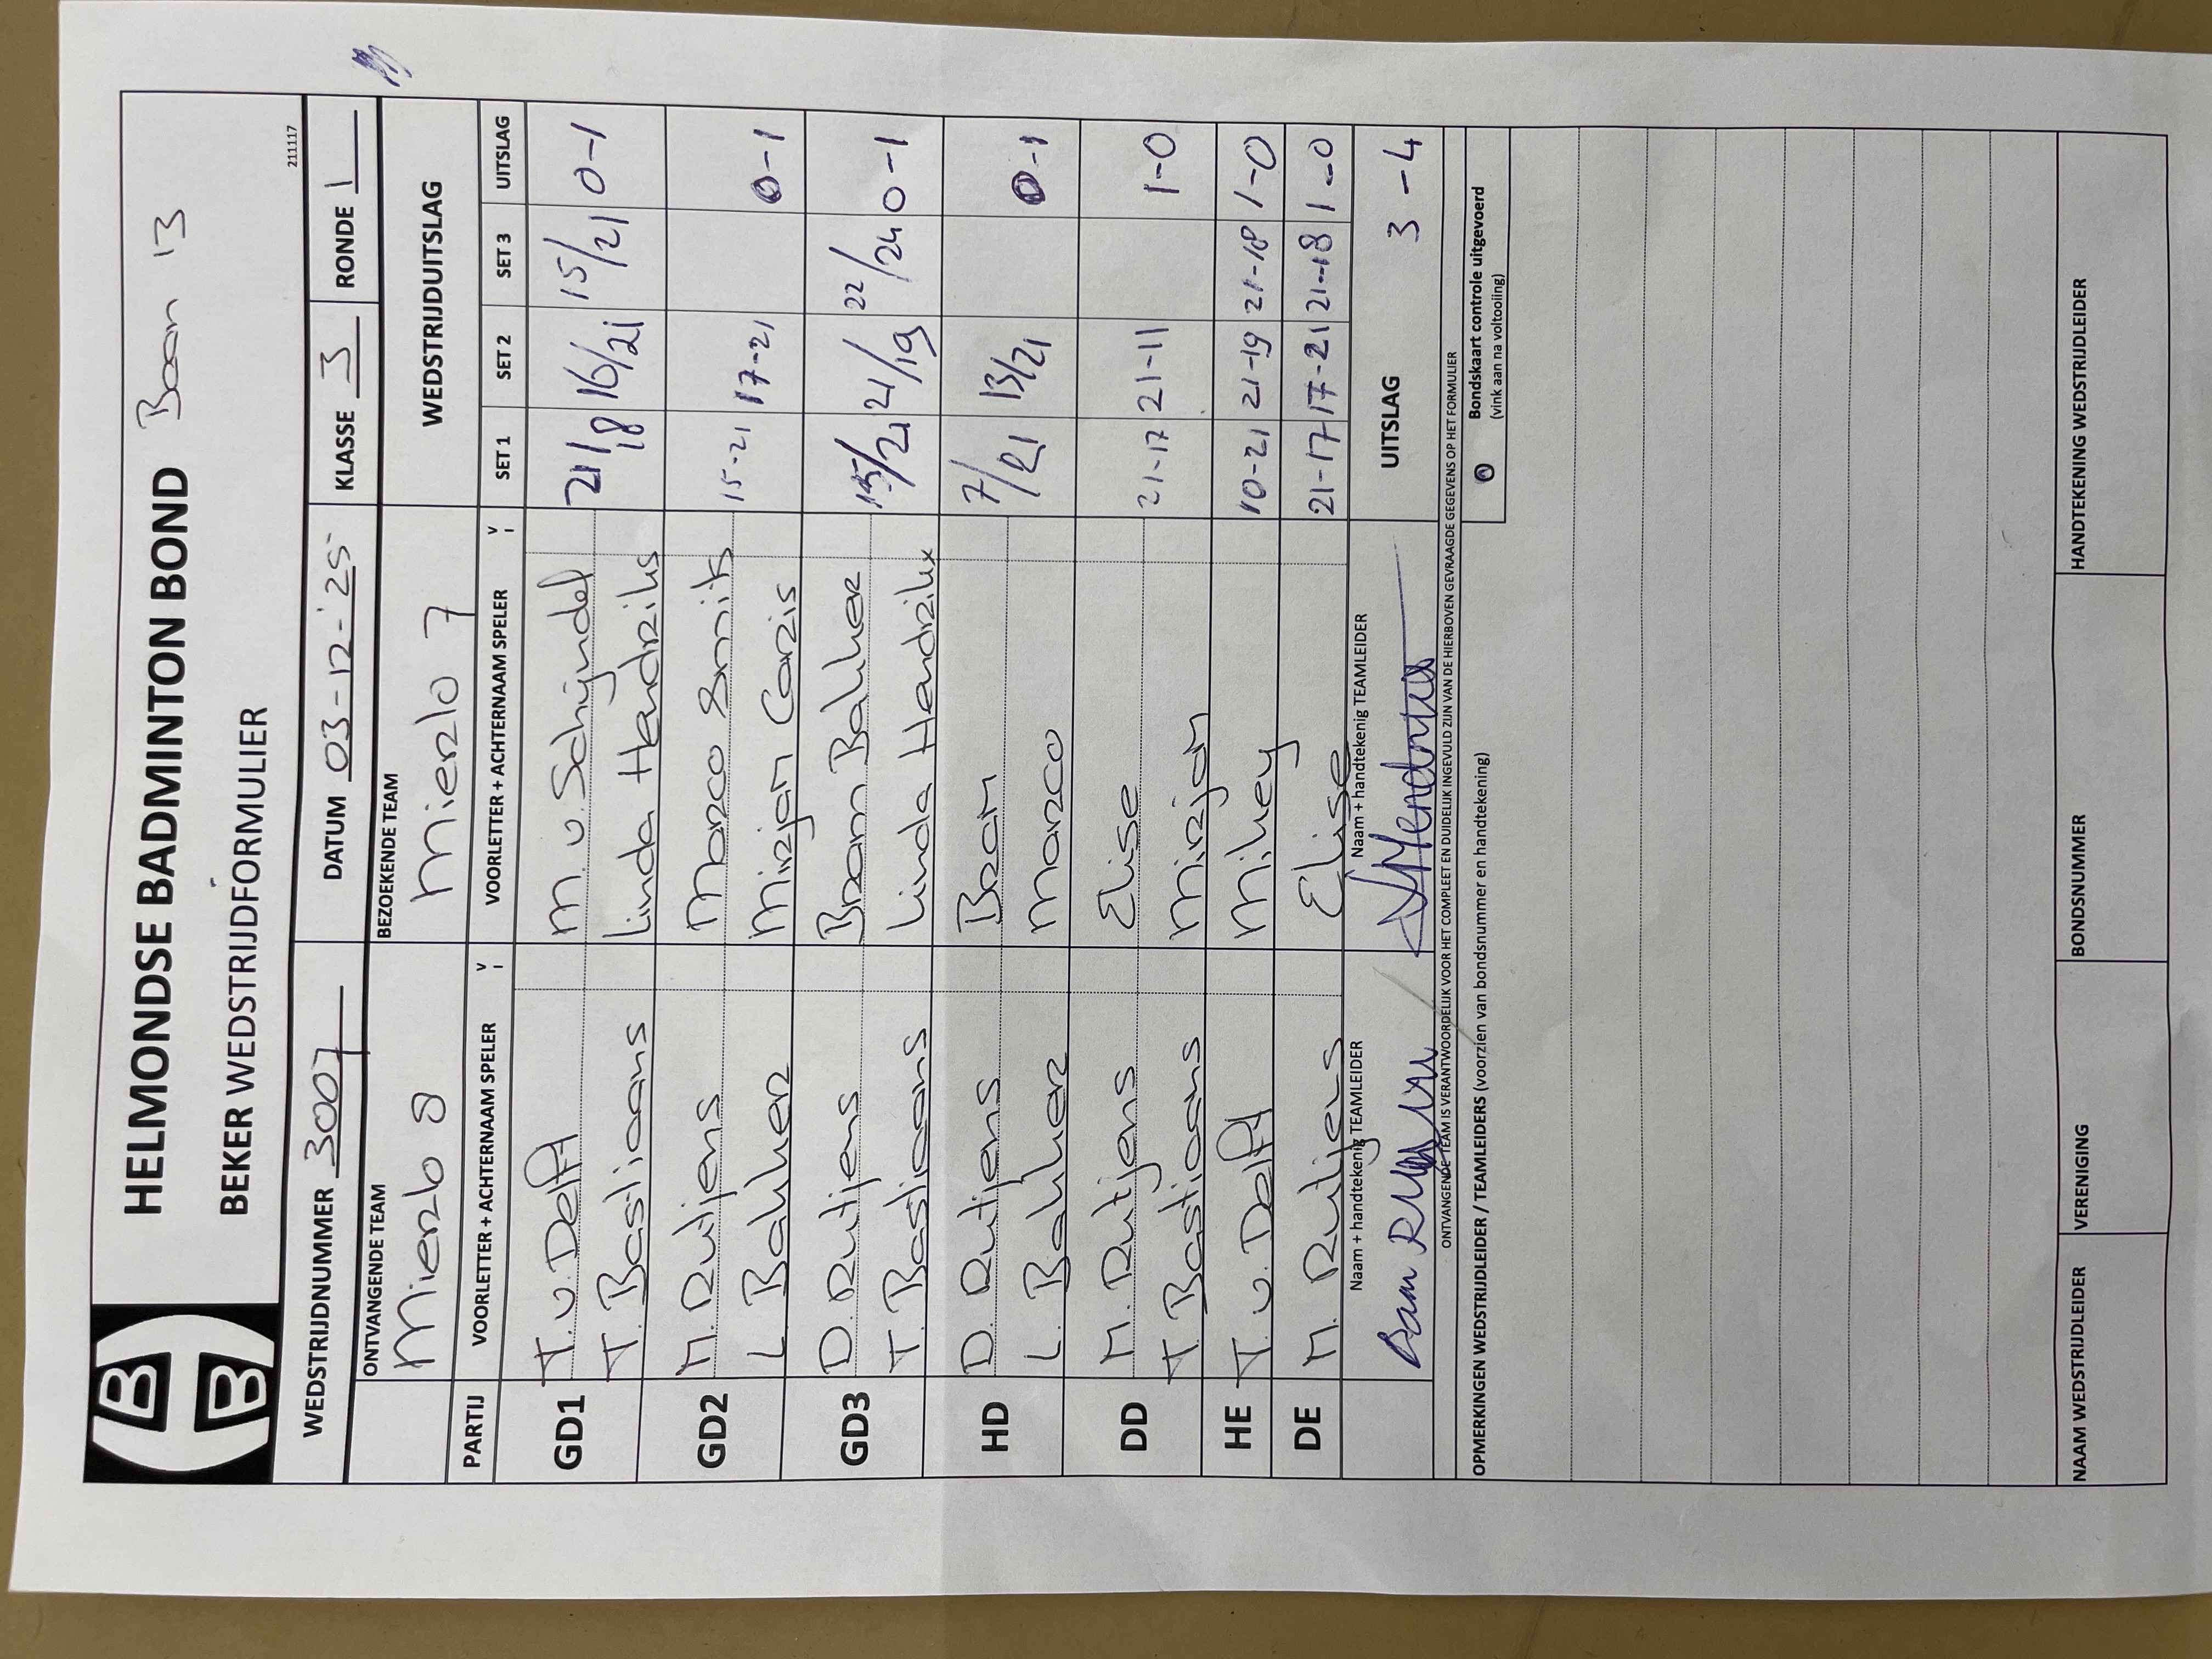 HELMONDSE BADMINTON BOND Baan 13
BEKER WEDSTRIJDFORMULIER
211117
WEDSTRIJDNUMMER 3007 DATUM 03-12-'25 KLASSE 3 RONDE 1
ONTVANGENDE TEAM BEZOEKENDE TEAM WEDSTRIJDUITSLAG
Mierlo 8 Mierlo 7
PARTIJ VOORLETTER + ACHTERNAAM SPELER V VOORLETTER + ACHTERNAAM SPELER V SET 1 SET 2 SET 3 UITSLAG
GD1 T. v. Delft M. v. Schijndel 21/18 16/21 15/21 0-1
T. Bastiaans Linda Hendriks
GD2 M. Rutjens Marco Smits 15-21 17-21 0-1
L Bakker Mirjam Caris
GD3 D. Rutjens Bram Bakker 15/21 21/19 22/24 0-1
T. Bastiaans Linda Hendrikx
HD D. Rutjens Bram 7/21 13/21 0-1
L. Bakker Marco
DD M. Rutjens Elise 21-17 21-11 1-0
T Bastiaans Mirjam
HE T. v. Delft Mikey 10-21 21-19 21-18 1-0
DE M. Rutjens Elise 21-17 17-21 21-18 1-0
Naam + handtekenig TEAMLEIDER Naam + handtekenig TEAMLEIDER UITSLAG 3-4
Daan
ONTVANGENDE TEAM IS VERANTWOORDELIJK VOOR HET COMPLEET EN DUIDELIJK INGEVULD ZIJN VAN DE HIERBOVEN GEVRAAGDE GEGEVENS OP HET FORMULIER
OPMERKINGEN WEDSTRIJDLEIDER / TEAMLEIDERS (voorzien van bondsnummer en handtekening) Bondskaart controle uitgevoerd
(vink aan na voltooiing)
NAAM WEDSTRIJDLEIDER VERENIGING BONDSNUMMER HANDTEKENING WEDSTRIJDLEIDER